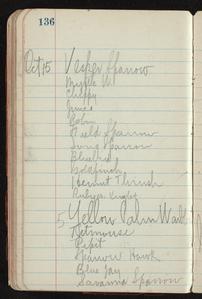 136
Oct 15 Vesper Sparrow
Myrtle W
Chippy
Junco
Robin
Field Sparrow
Song Sparrow
Bluebird
Goldfinch
Hermit Thrush
Ruby c. Kinglet
5 Yellow Palm Warb
Titmouse
Pipit
Sparrow Hawk
Blue Jay
Savanna Sparrow